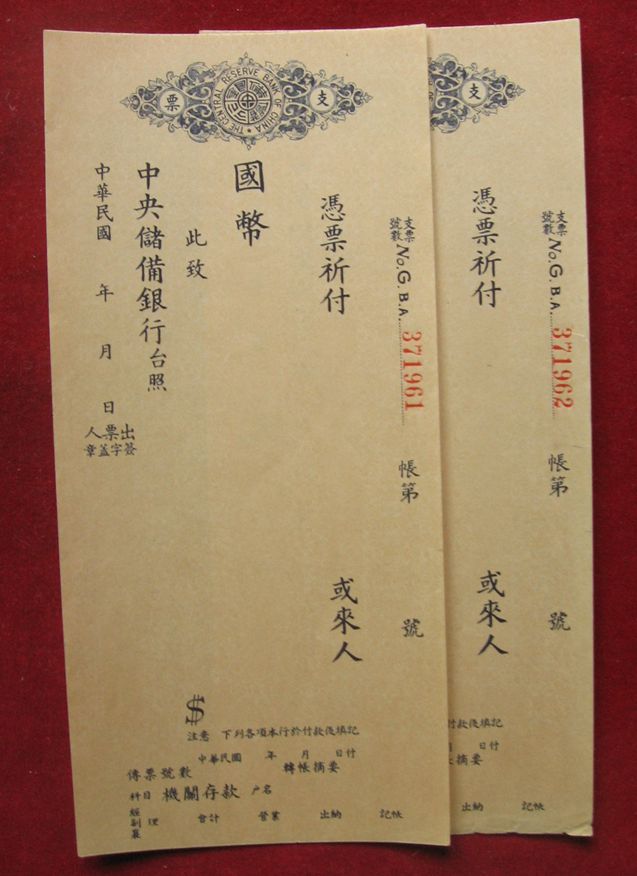 支票
THE CENTRAL RESERVE BANK OF CHINA
支票號數 No. G. B.A. 371961 帳第 號
憑票祈付 或來人
國幣
此致
中央儲備銀行台照
中華民國 年 月 日
出票人
簽字蓋章
$
注意 下列各項本行於付款後填記
中華民國 年 月 日付
傳票號數 轉帳摘要
科目 機關存款 户名
經副襄理 會計 營業 出納 記帳
支
支票號數 No. G. B.A. 371962 帳第 號
憑票祈付 或來人
付款後填記
日付
摘要
出納 記帳